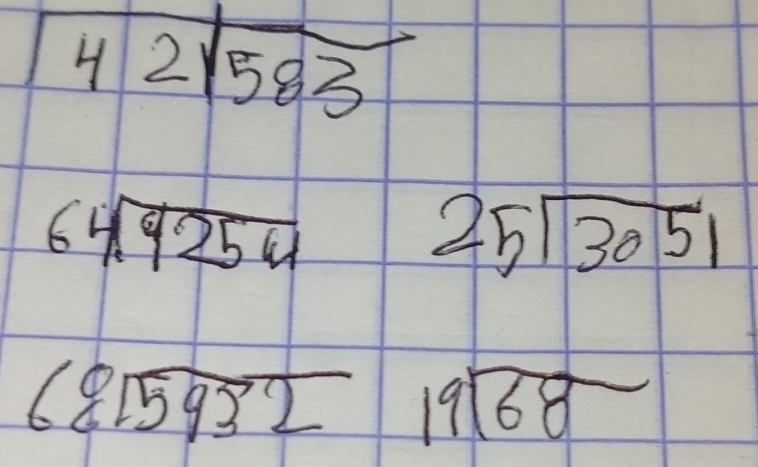 42√583
64√9254 25√3051
68√5932 19√68